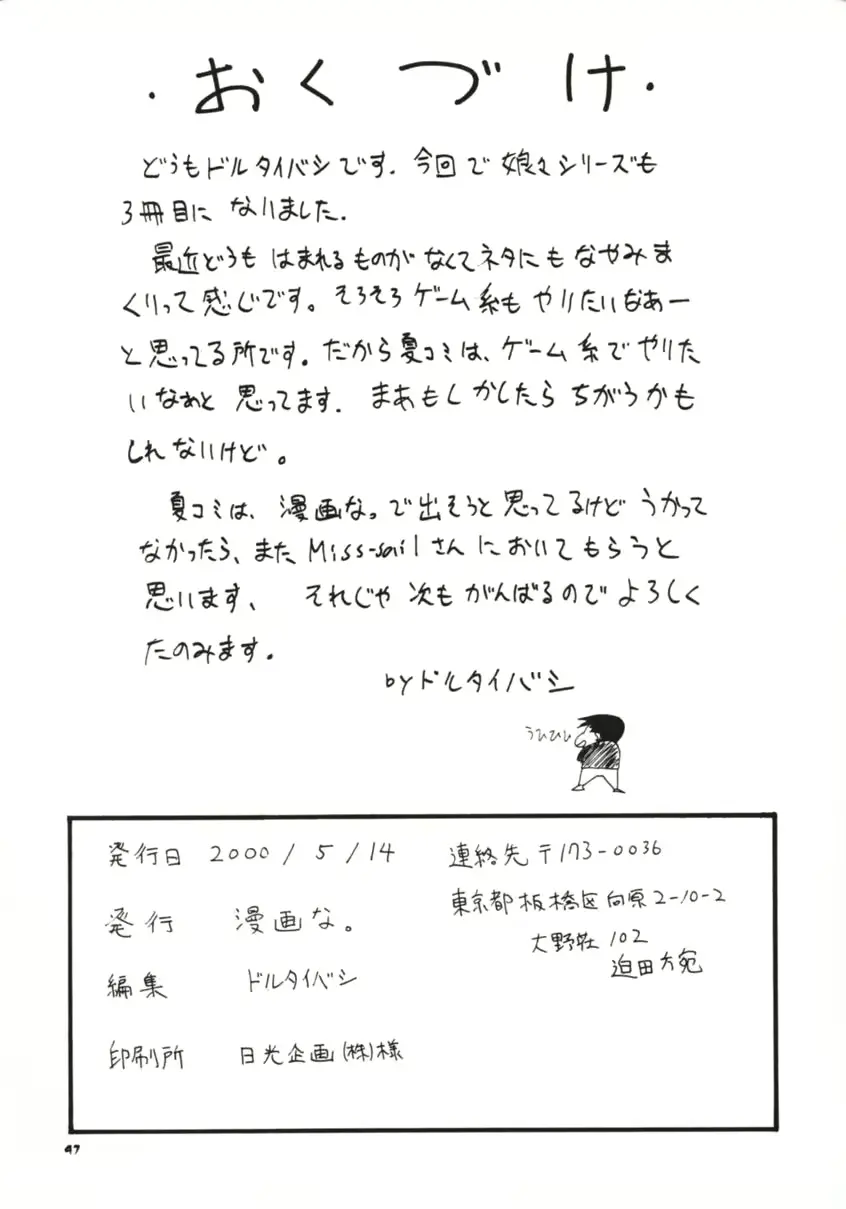 ・おくづけ・
どうもドルタイバシです. 今回で娘々シリーズも
3冊目になりました.
最近どうもはまれるものがなくてネタにもなやみま
くりって感じです。そろそろゲーム系もやりたいなあー
と思ってる所です。だから夏コミは、ゲーム系でやりた
いなぁと思ってます. まあもしかしたらちがうかも
しれないけど。
夏コミは、漫画な。で出そうと思ってるけどうかって
なかったら、またMiss-sailさんにおいてもらうと
思います、 それじゃ次もがんばるのでよろしく
たのみます。
byドルタイバシ
うひひひ
発行日 2000/5/14
発行 漫画な。
編集 ドルタイバシ
印刷所 日光企画(株)様
連絡先 〒173-0036
東京都板橋区向原2-10-2
大野荘102
迫田方宛
47